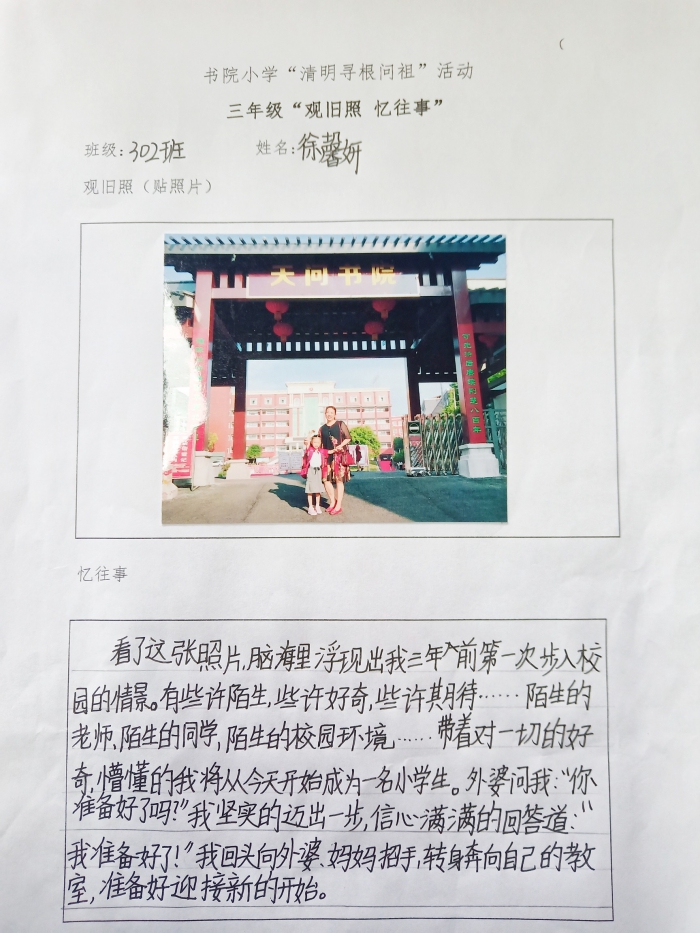 书院小学“清明寻根问祖”活动
三年级“观旧照 忆往事”
班级：302班 姓名：徐馨妍
观旧照（贴照片）
天问书院
忆往事
看了这张照片，脑海里浮现出我三年前第一次步入校
园的情景。有些许陌生，些许好奇，些许期待……陌生的
老师，陌生的同学，陌生的校园环境……带着对一切的好
奇，懵懂的我将从今天开始成为一名小学生。外婆问我：“你
准备好了吗？”我坚实的迈出一步，信心满满的回答道：“
我准备好了！”我回头向外婆、妈妈招手，转身奔向自己的教
室，准备好迎接新的开始。